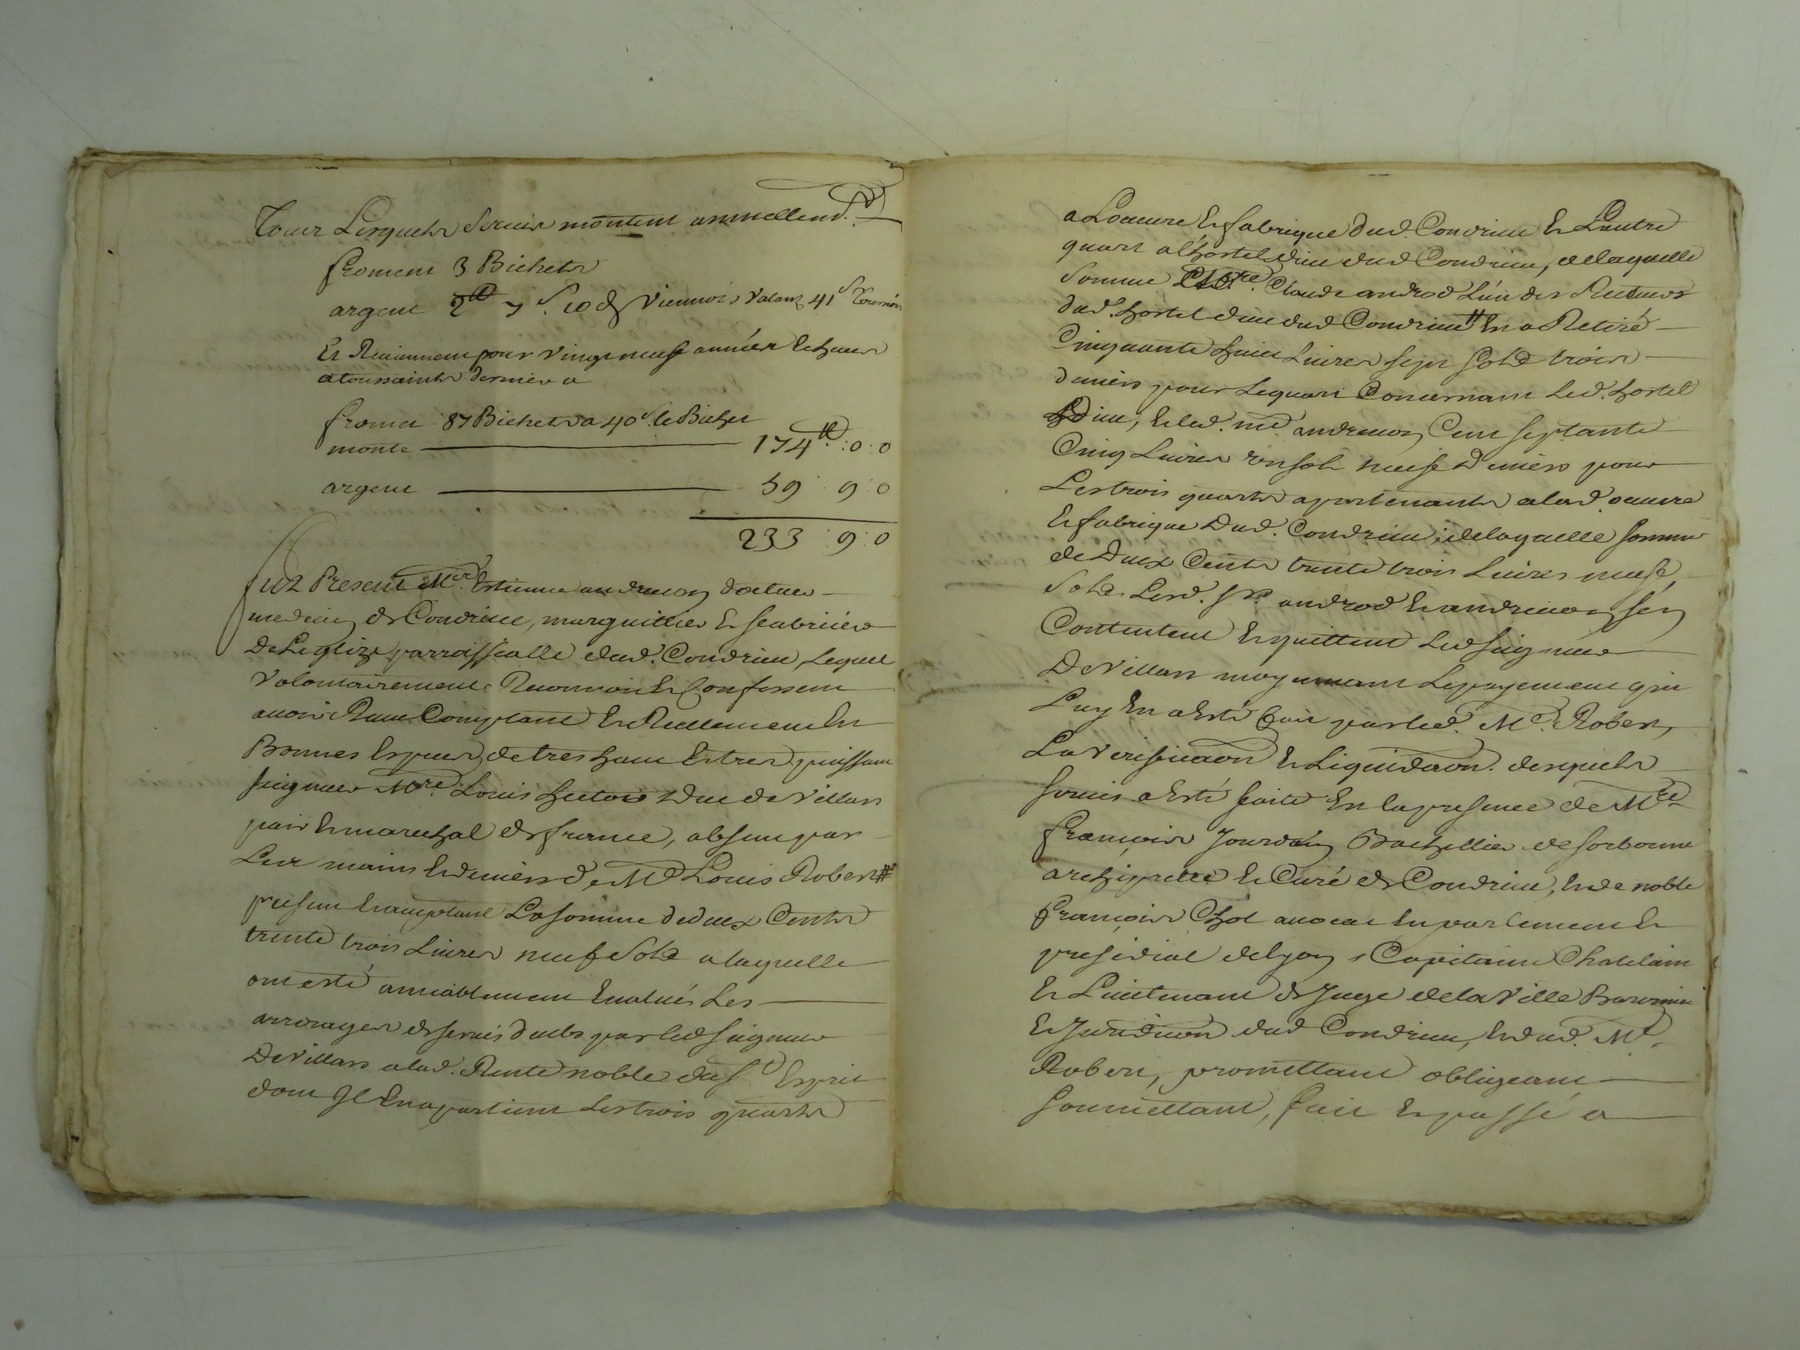 Tous Lesquels Servis montent annuellemt. A
froment 3 Bichets
argent 2ll 7s. 10d Viennois valant 41s tournois
Et Reviennent pour vingt neuf années Echeues
a toussaints dernier a
fromt 87 Bichets a 40s. le Bichet
monte 174ll : 0 : 0
argent 59 : 9 : 0
233 : 9 : 0
fut Present Mre. Estienne andrevon docteur
medecin de Condrieu, marguillier & feabricier
De Leglize parroissialle dud. Condrieu Lequel
Volontairement Reconnoit & Confessent
avoir Receu Comptant & Reellement En
Bonnes Especes, de tres haut & tres puissant
seigneur Mre. Louis hector Duc de Villars
pair & marechal de france, absent par
Les mains & deniers de Me Louis Robert #
present & acceptant La somme de deux Cents
trente trois Livres neuf sols a laquelle
ont esté amiablement Evalués Les
arrerages de servis deubs par led seigneur
De Villars a lad. Rente noble du St Esprit
dont Il En apartient Les trois quarts
a Loeuvre & fabrique dud. Condrieu & Lautre
quart a lhostel dieu dud Condrieu, de laquelle
Somme Claude androd L'un des Recteurs
dud. hostel dieu dud Condrieu # En a Retiré
Cinquante huit Livres sept sols trois
deniers pour Lequart Concernant Led. hostel
Dieu, & led. me andrevon Cent septante
Cinq Livres un sol neuf deniers pour
Les trois quarts apartenants a lad. oeuvre
& fabrique Dud. Condrieu ; de laquelle somme
de Deux Cents trente trois Livres neuf
Sols Lesd. srs androd & andrevon s'en
Contentent & quittent Led seigneur
De Villars moyennant Le payement qui
Luy En a Esté fait par led. Me. Robert,
La Verification & Liquidaon. desquels
servis a Esté faite En la presence de Mre
François Jourdan Bachellier de sorbonne
archiprette & Curé de Condrieu, & de noble
François Chol avocat En parlement &
presidial de Lyon Capitaine Chatelain
& Lieutenant de Juge de la Ville Baronnie
& Juridicon dud Condrieu, & dud. Me.
Robert, promettant obligeant
soumettant, fait & passé a